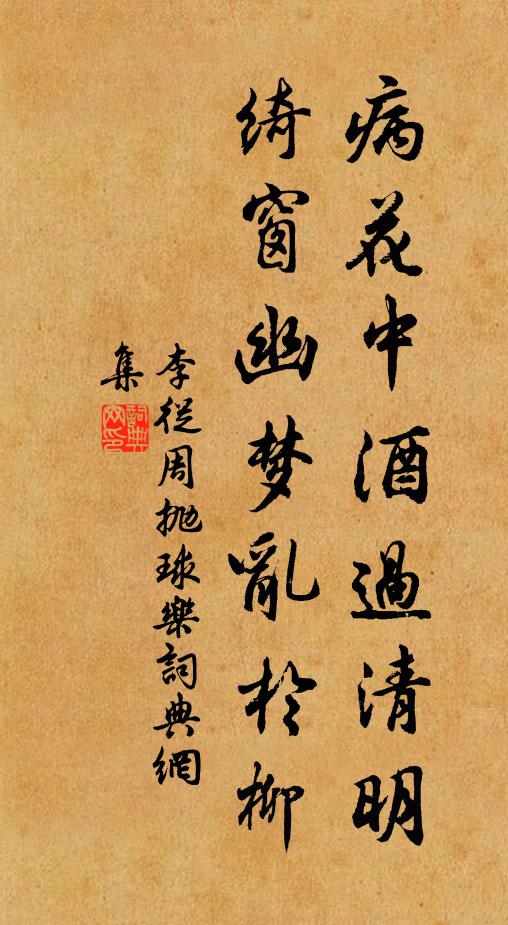 病花中酒過清明
綺窗幽梦亂於柳
李從周拋球樂詞典網
集
詞典
网印